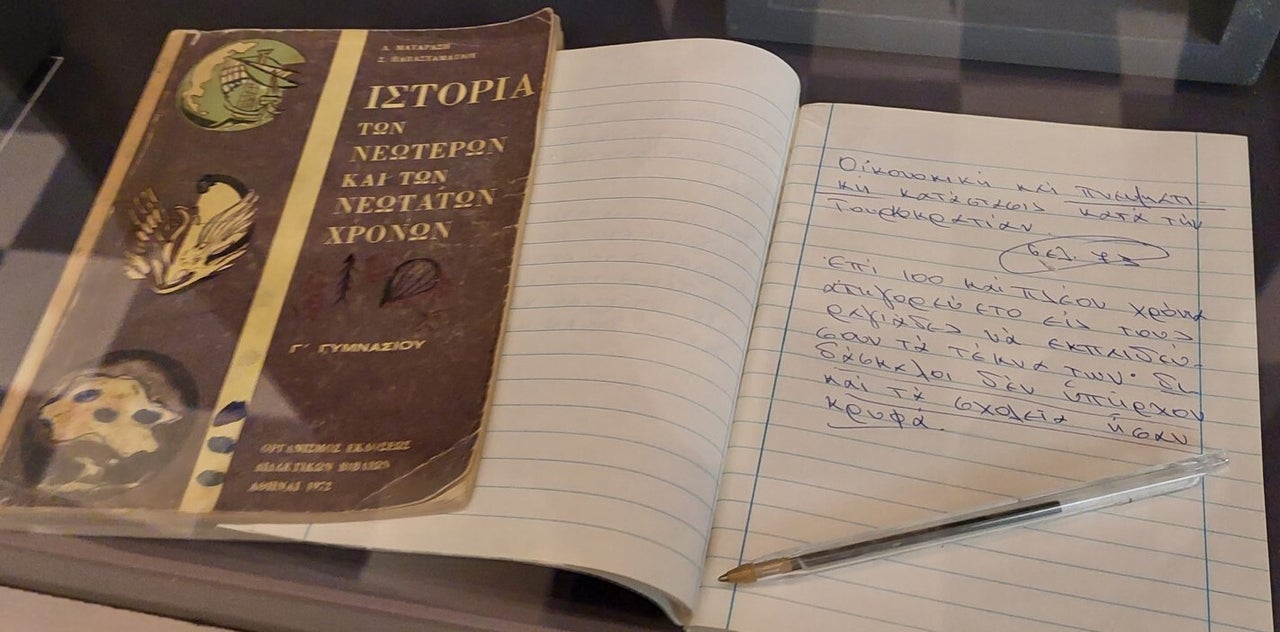 Λ. ΜΑΤΑΡΑΣΗ
Σ. ΠΑΠΑΣΤΑΜΑΤΙΟΥ
ΙΣΤΟΡΙΑ
ΤΩΝ
ΝΕΩΤΕΡΩΝ
ΚΑΙ ΤΩΝ
ΝΕΩΤΑΤΩΝ
ΧΡΟΝΩΝ
Γ΄ ΓΥΜΝΑΣΙΟΥ
ΟΡΓΑΝΙΣΜΟΣ ΕΚΔΟΣΕΩΣ
ΔΙΔΑΚΤΙΚΩΝ ΒΙΒΛΙΩΝ
ΑΘΗΝΑΙ 1972
Οἰκονομική καί πνευματι-
κή κατάστασις κατά τήν
Τουρκοκρατίαν.
σελ. 73
Ἐπί 100 καί πλέον χρόνια
ἀπηγορεύετο εἰς τούς
ραγιάδες νά ἐκπαιδεύ-
σουν τά τέκνα των· δι-
δάσκαλοι δέν ὑπῆρχον
καί τά σχολεῖα ἦσαν
κρυφά.